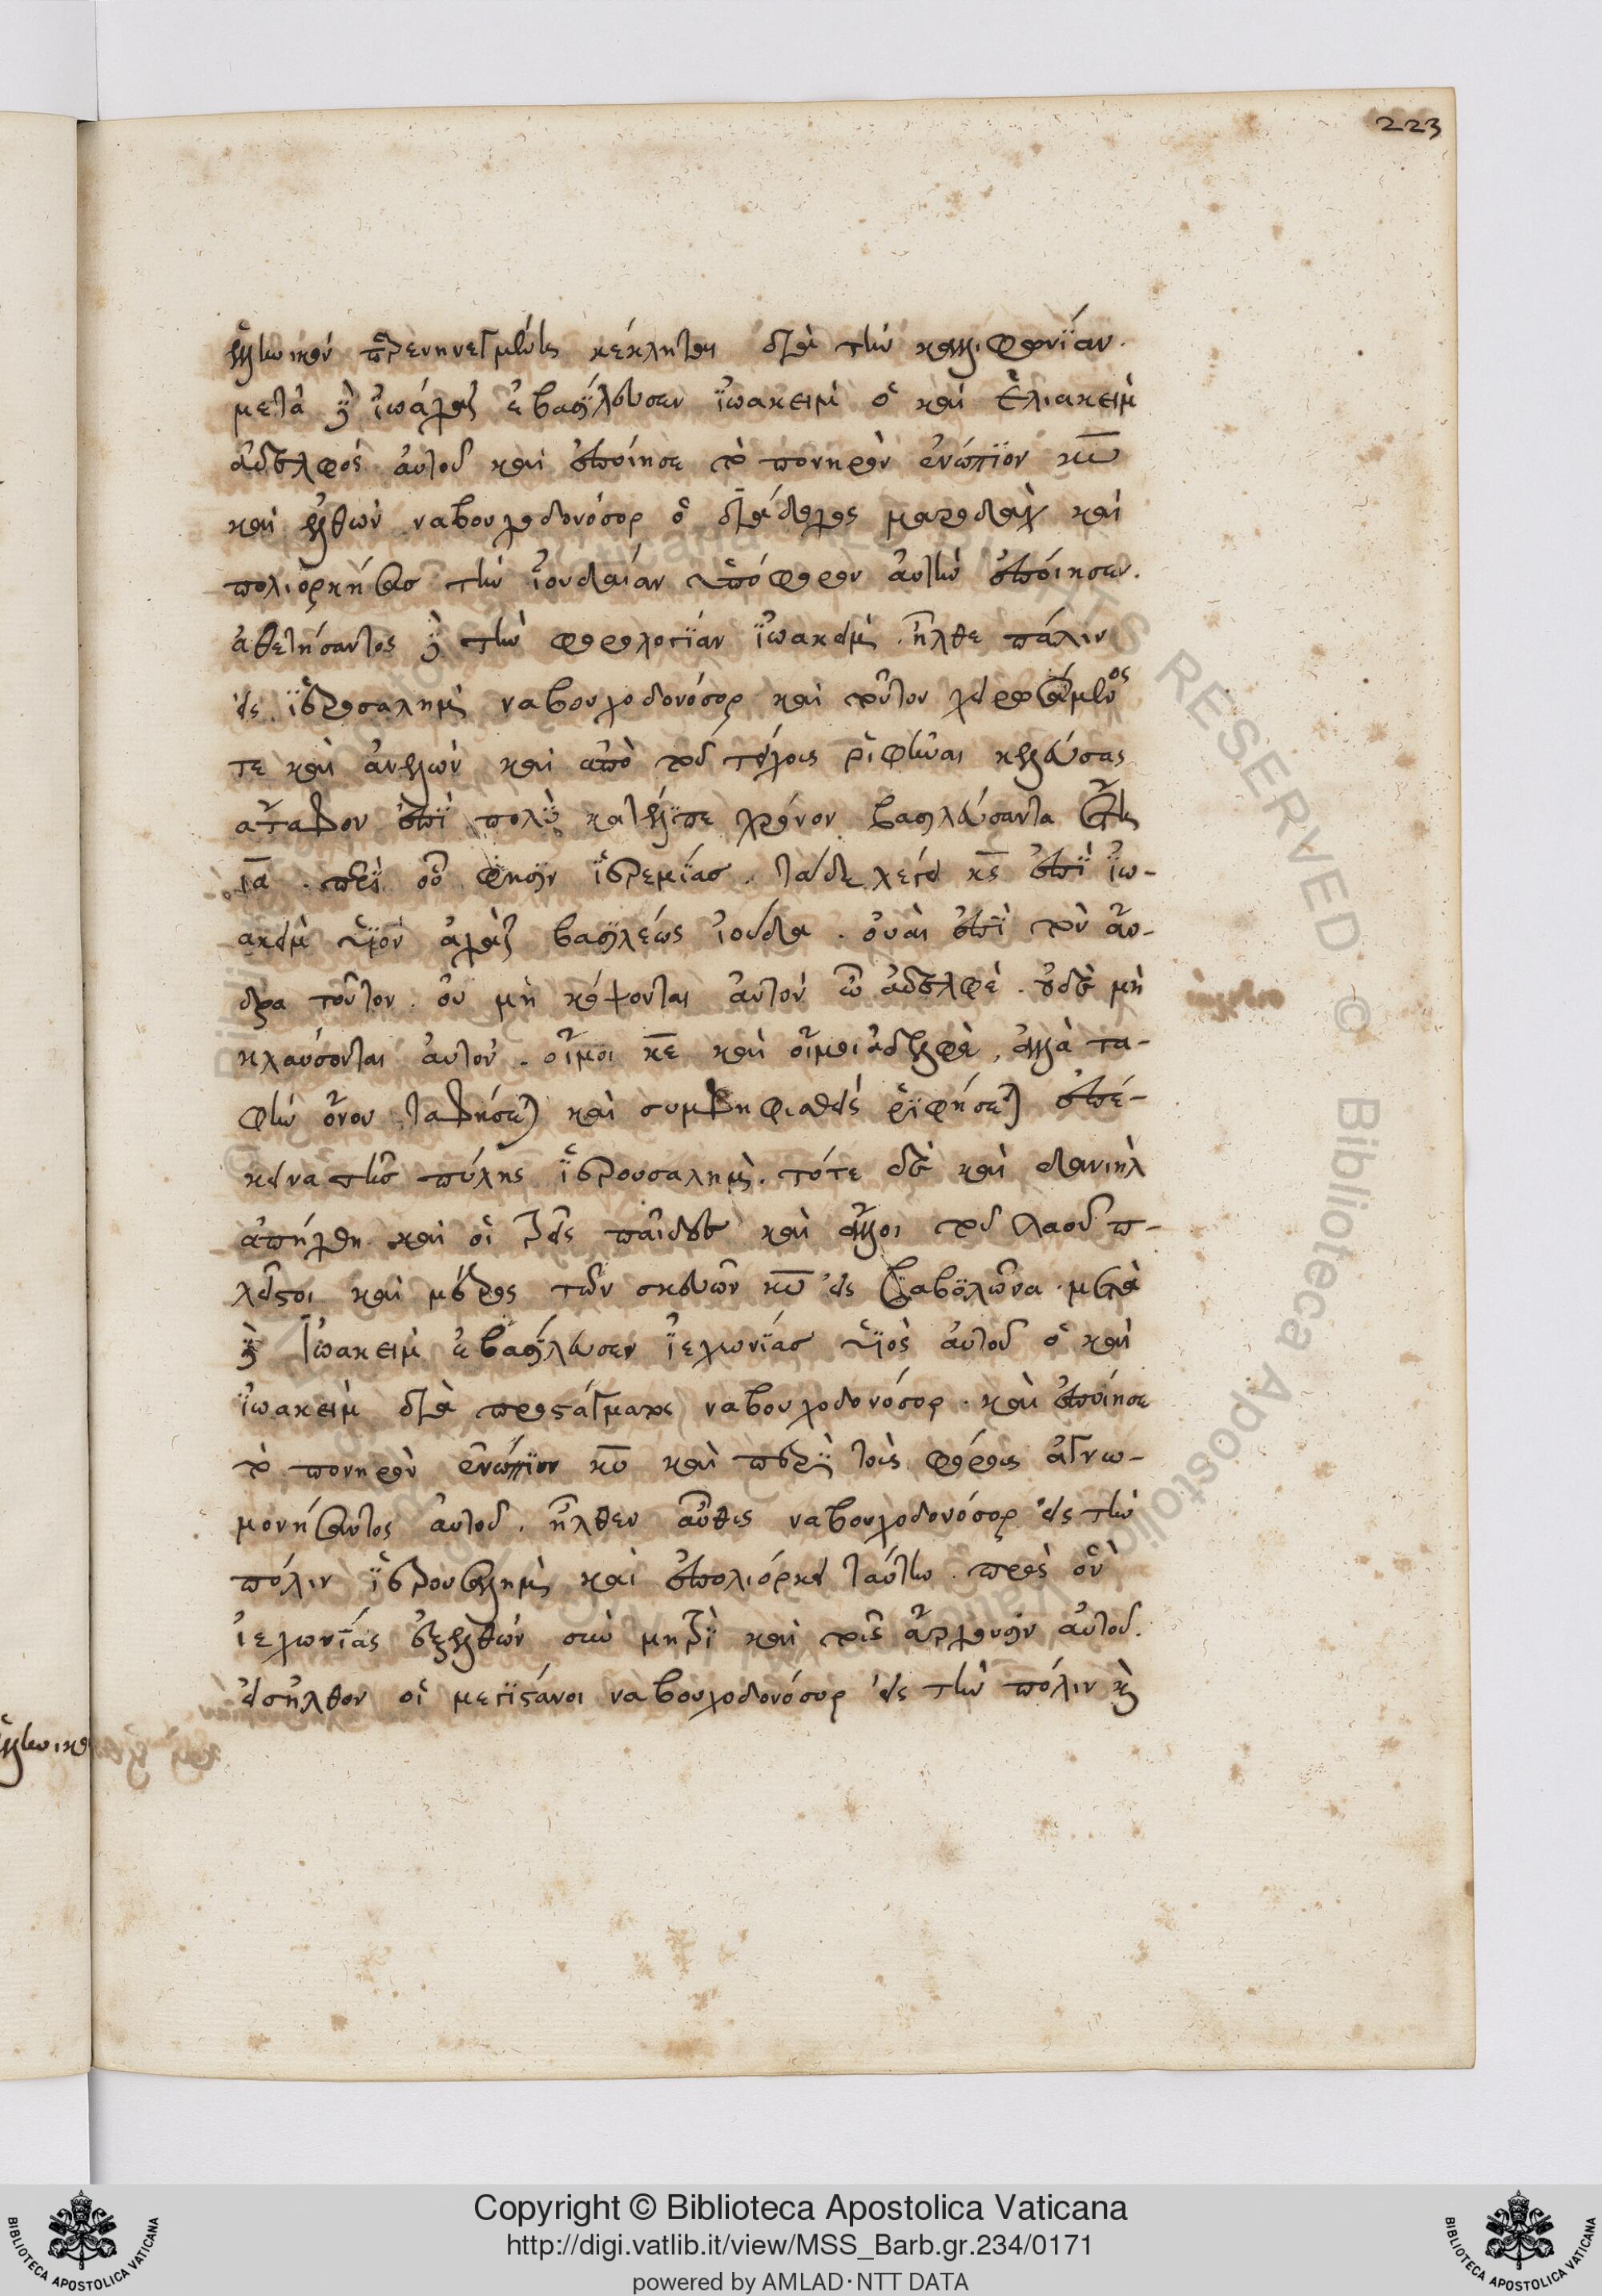 223
ἑλληνικὸν παρενηνεγμένης κέκληται διὰ τὴν καλλιφωνίαν.
μετὰ δὲ ἰωάχαζ ἐβασίλευσεν ἰωακεὶμ ὁ καὶ ἐλιακεὶμ
ἀδελφὸς αὐτοῦ καὶ ἐποίησε τὸ πονηρὸν ἐνώπιον κυ
καὶ ἐλθὼν ναβουχοδονόσορ ὁ διάδοχος μαροδὰχ καὶ
πολιορκήσας τὴν ἰουδαίαν ὑπόφορον αὐτὴν ἐποίησεν.
ἀθετήσαντος δὲ τὴν φορολογίαν ἰωακεὶμ. ἦλθε πάλιν
εἰς ἱερουσαλὴμ ναβουχοδονόσορ καὶ τοῦτον χειρωσάμενος
τε καὶ ἀνελὼν καὶ ἀπὸ τοῦ τείχους ῥιφῆναι κελεύσας
ἄταφον ἐπὶ πολὺ κατέλιπε χρόνον βασιλεύσαντα ἔτη
ια. περὶ οὗ φησὶν ἱερεμίας. τάδε λέγει κς ἐπὶ ἰω-
ακεὶμ υἱὸν ἀχὰζ βασιλέως ἰούδα. οὐαὶ ἐπὶ τὸν ἄν-
δρα τοῦτον. οὐ μὴ κόψονται αὐτὸν ὦ ἀδελφὲ. οὐδὲ μὴ
κλαύσονται αὐτὸν. οἴμοι κε καὶ οἴμοι ἀδελφὲ, ἀλλὰ τα-
φὴν ὄνου ταφήσεται καὶ συμψηφισθεὶς ῥιφήσεται ἐπέ-
κεινα τῆς πύλης ἱερουσαλὴμ. τότε δὲ καὶ δανιὴλ
ἀπήχθη καὶ οἱ τρεῖς παῖδες καὶ ἄλλοι τοῦ λαοῦ π-
λεῖστοι καὶ μέρος τῶν σκευῶν κυ εἰς βαβυλῶνα. μετὰ
δὲ ἰωακεὶμ ἐβασίλευσεν ἰεχωνίας υἱὸς αὐτοῦ ὁ καὶ
ἰωακεὶμ διὰ προστάγματος ναβουχοδονόσορ. καὶ ἐποίησε
τὸ πονηρὸν ἐνώπιον κυ καὶ περὶ τοὺς φόρους ἀγνω-
μονήσαντος αὐτοῦ. ἦλθεν αὖθις ναβουχοδονόσορ εἰς τὴν
πόλιν ἱερουσαλὴμ καὶ ἐπολιόρκει ταύτην. πρὸς ὃν
ἰεχωνίας ἐξελθὼν σὺν μητρὶ καὶ τοῖς ἄρχουσιν αὐτοῦ.
εἰσῆλθον οἱ μεγιστάνοι ναβουχοδονόσορ εἰς τὴν πόλιν καὶ
Copyright © Biblioteca Apostolica Vaticana
http://digi.vatlib.it/view/MSS_Barb.gr.234/0171
powered by AMLAD·NTT DATA